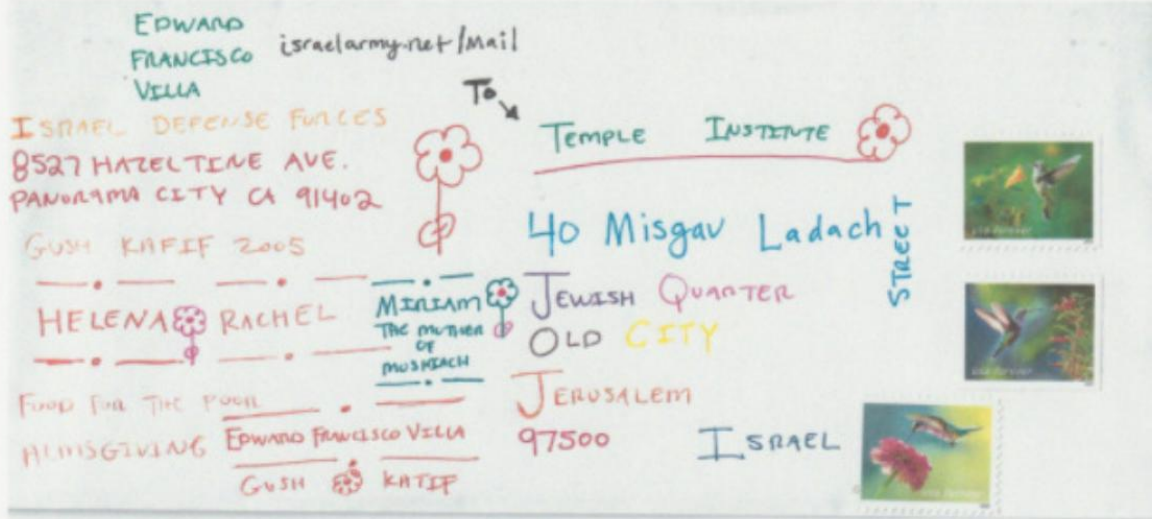 EDWARD
FRANCISCO
VILLA
israelarmy.net/Mail
ISRAEL DEFENSE FORCES
8527 HAZELTINE AVE.
PANORAMA CITY CA 91402
GUSH KATIF 2005
HELENA RACHEL
MIRIAM
THE MOTHER
OF
MOSHIACH
FOOD FOR THE POOR
ALMSGIVING
EDWARD FRANCISCO VILLA
GUSH KATIF
To
TEMPLE INSTITUTE
40 Misgav Ladach
STREET
JEWISH QUARTER
OLD CITY
JERUSALEM
97500 ISRAEL
USA Forever
USA Forever
USA Forever